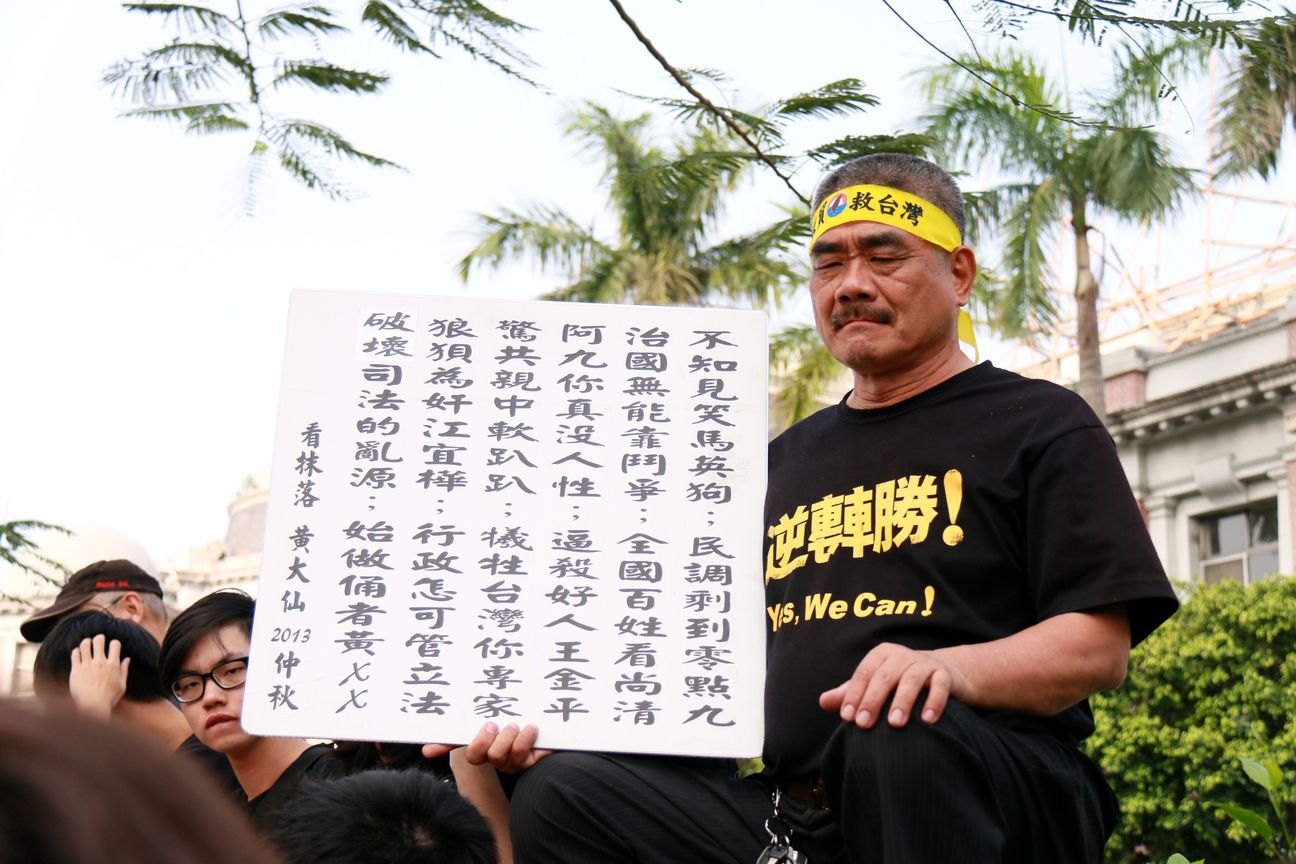 不知見笑馬英狗；民調剩到零點九
治國無能靠鬥爭；全國百姓看尚清
阿九你真没人性；逼殺好人王金平
驚共親中軟趴趴；犧牲台灣你專家
狼狽為奸江宜樺；行政怎可管立法
破壞司法的亂源；始做俑者黃XX
看抹落 黃大仙 2013 仲秋
救台灣
逆轉勝！
Yes, We Can！